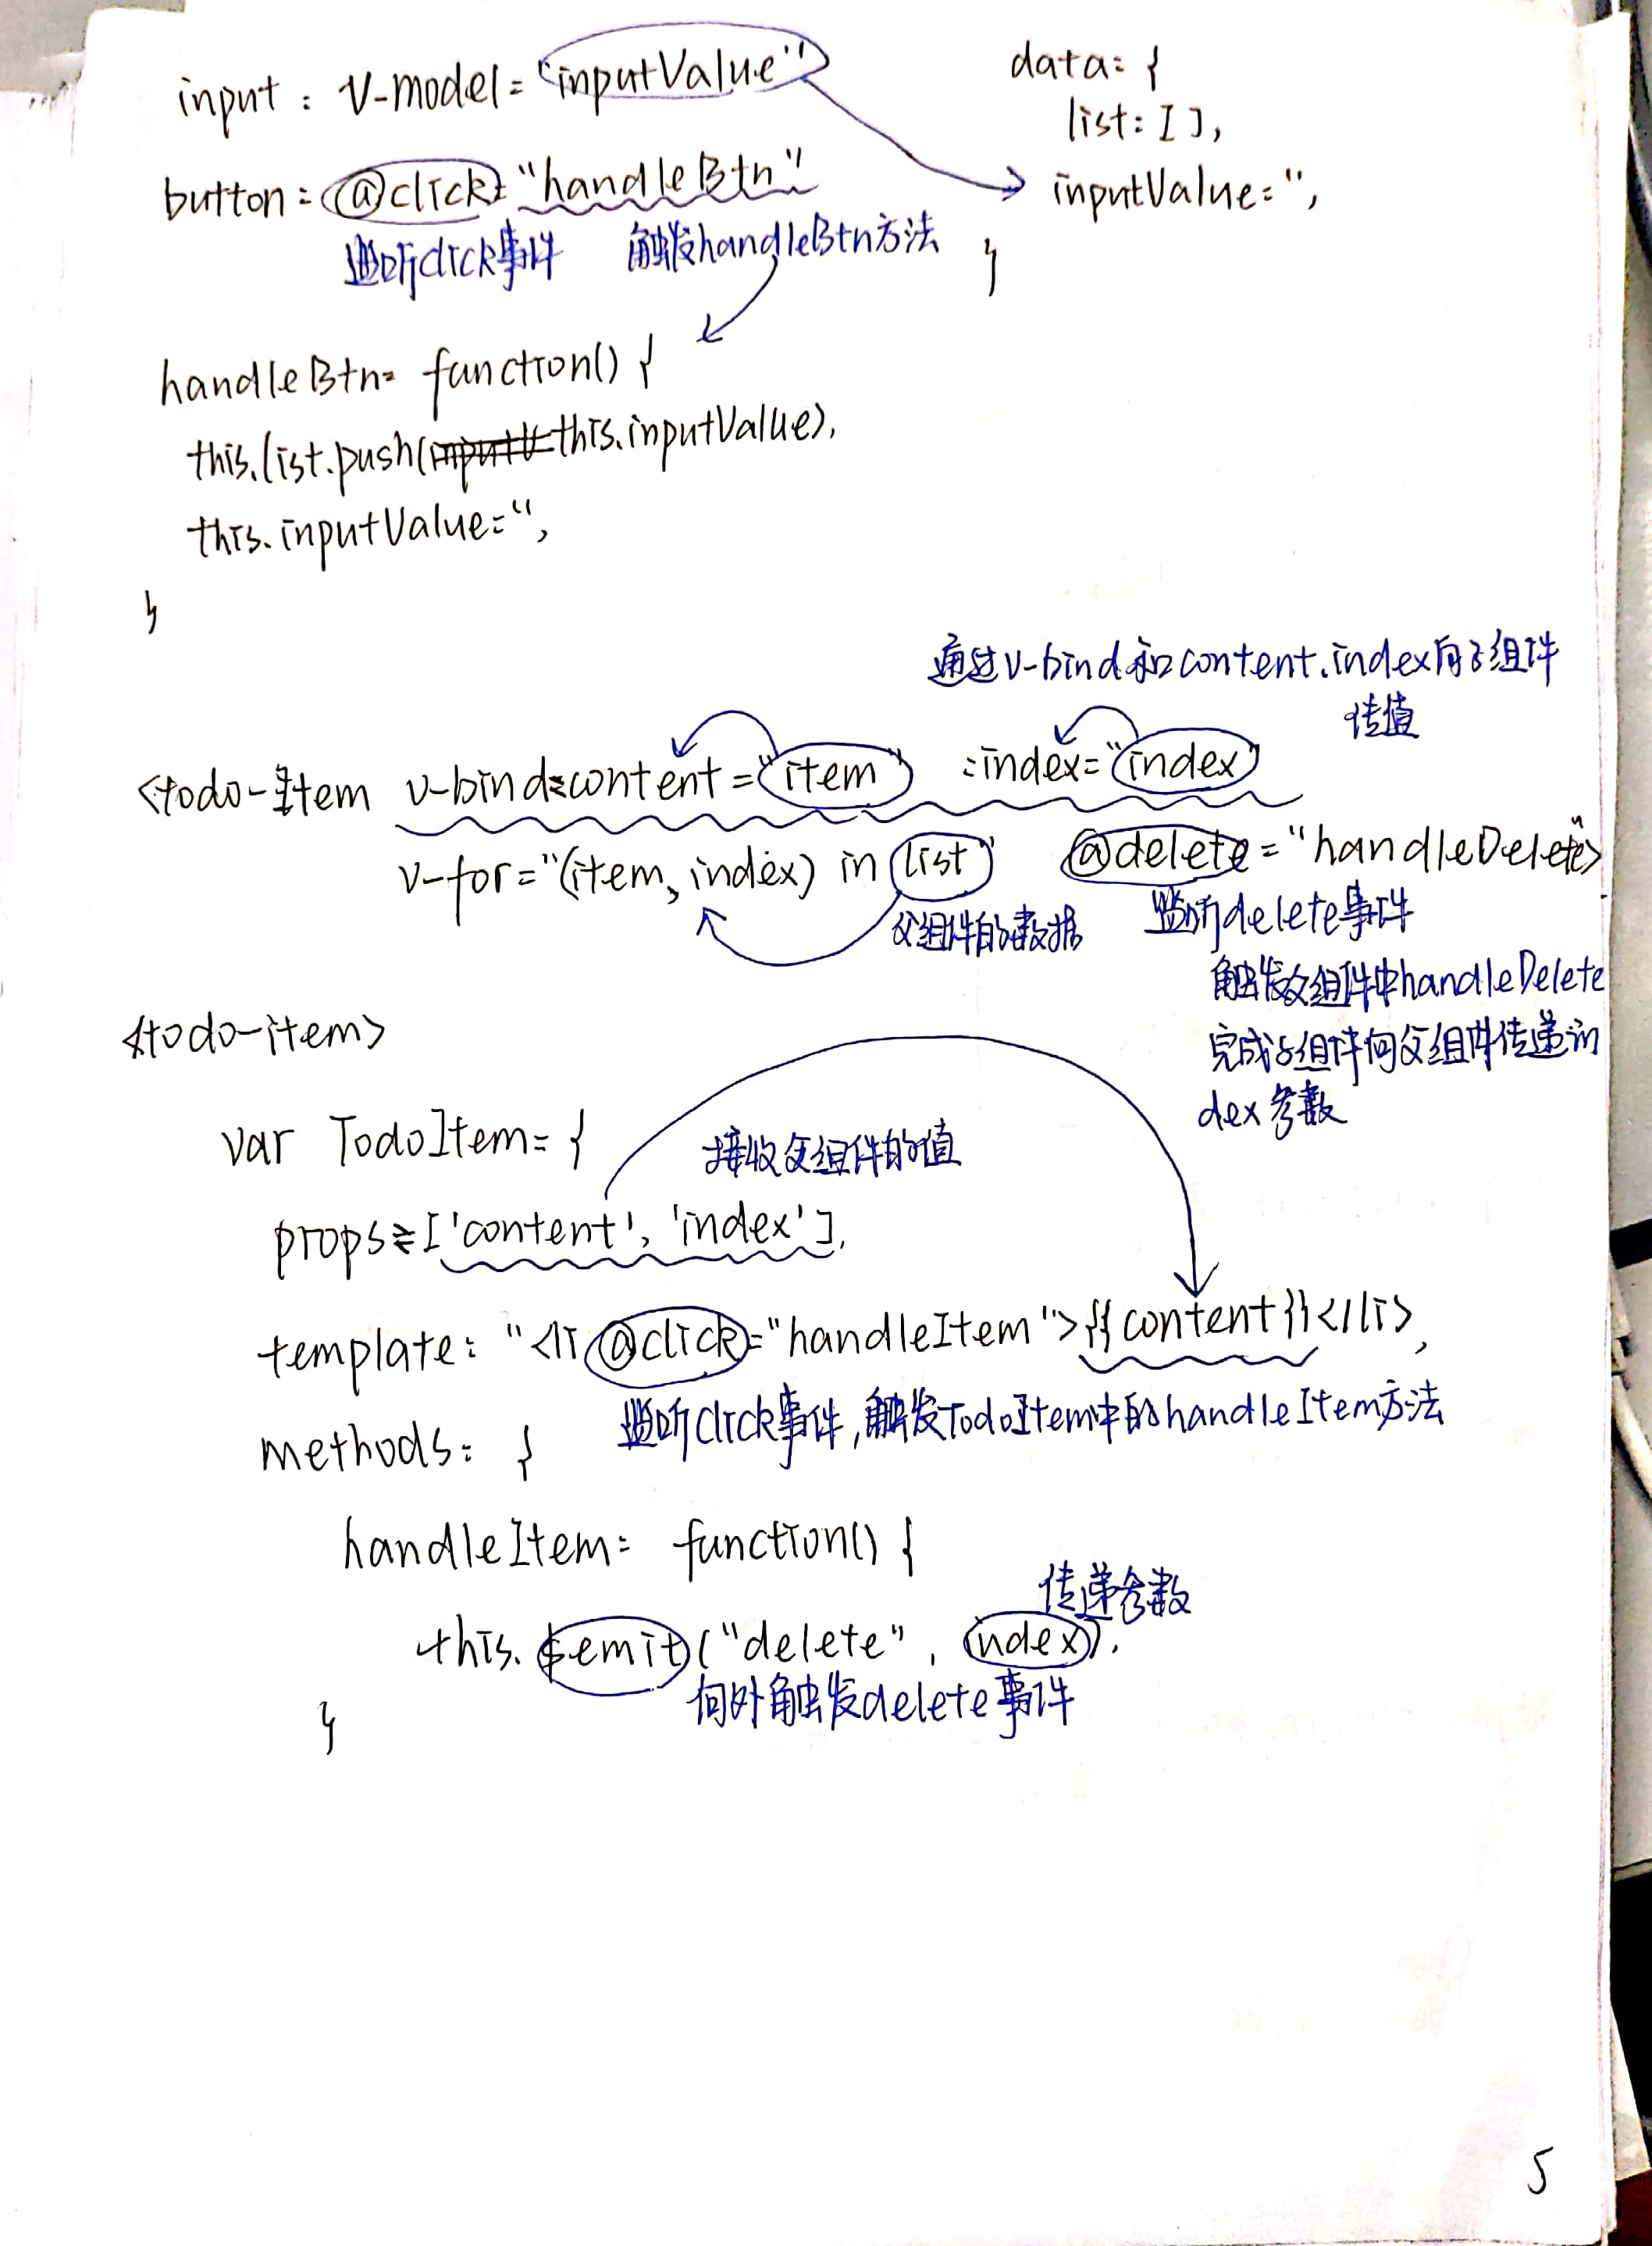 input: v-model="inputValue"
data: {
list: [],
inputValue: '',
}
button: @click="handleBtn"
监听click事件 触发handleBtn方法
handleBtn: function() {
this.list.push(this.inputValue),
this.inputValue='',
}
通过v-bind和content.index向子组件
传值
<todo-Item v-bind:content="item" :index="index"
v-for="(item, index) in list" @delete="handleDelete">
父组件的数据
监听delete事件
触发父组件中handleDelete
完成子组件向父组件传递in
dex参数
<todo-item>
var TodoItem={
接收父组件的值
props: ['content', 'index'],
template: "<li @click="handleItem">{{content}}</li>,
监听click事件,触发TodoItem中的handleItem方法
methods: {
handleItem: function() {
传递参数
this.$emit("delete", index),
向外触发delete事件
}
5